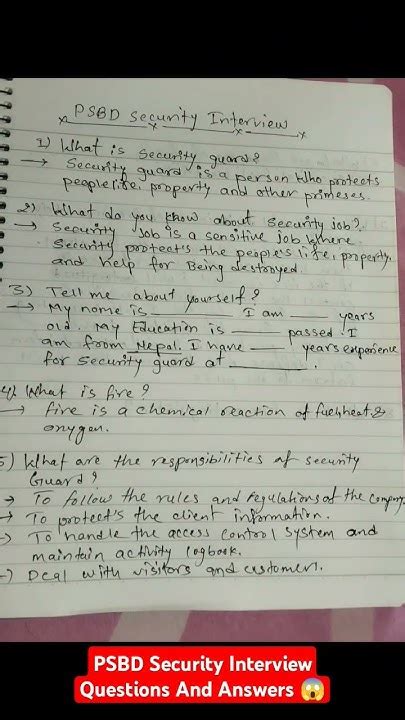 PSBD Security Interview
1) What is Security guard?
→ Security guard is a person who protects
people life, property and other primeses.
2) What do you know about Security job?
→ Security Job is a sensitive job where
Security protect's the people's life, property
and help for Being destroyed.
3) Tell me about yourself?
→ My name is ________ I am ____ years
old. My Education is ______ passed. I
am from Nepal. I have ____ years experience
for Security guard at ________.
4) What is fire?
→ fire is a chemical reaction of fuel, heat &
oxygen.
5) What are the responsibilities of security
Guard?
→ To follow the rules and regulations of the company.
→ To protect's the client information.
→ To handle the access control system and
maintain activity logbook.
→ Deal with visitors and customers.
PSBD Security Interview
Questions And Answers 😱